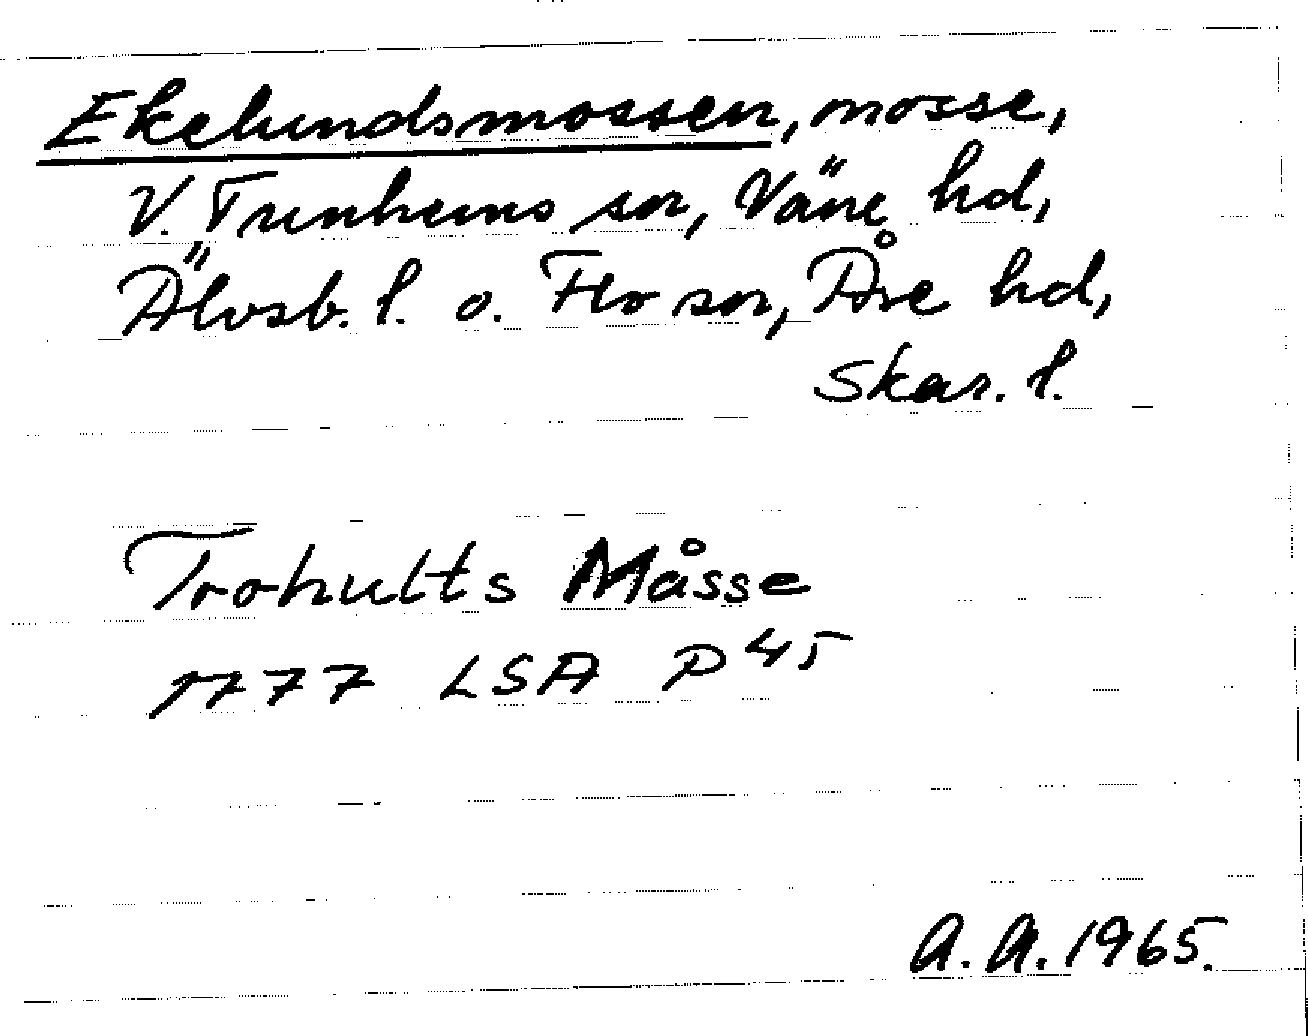 Ekelundsmossen, mosse,
V. Tunhems sn, Väne hd,
Älvsb. l. o. Flo sn, Åse hd,
Skar. l.
Trohults Måsse
1777 LSA P 45
A. A. 1965.